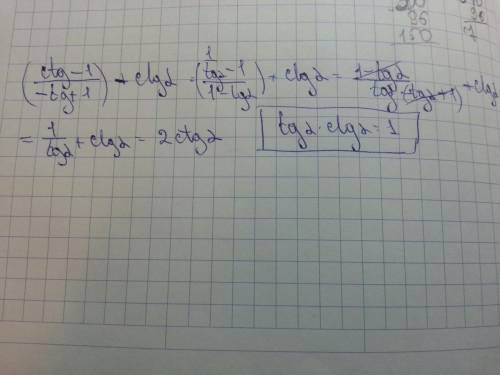 20 96
96
150 7
(ctg-1 / -tg+1) + ctgα = (1/tgα -1 / 1-tgα) + ctgα = 1-tgα / tgα(-tgα+1) + ctgα
= 1/tgα + ctgα = 2ctgα tgα·ctgα=1